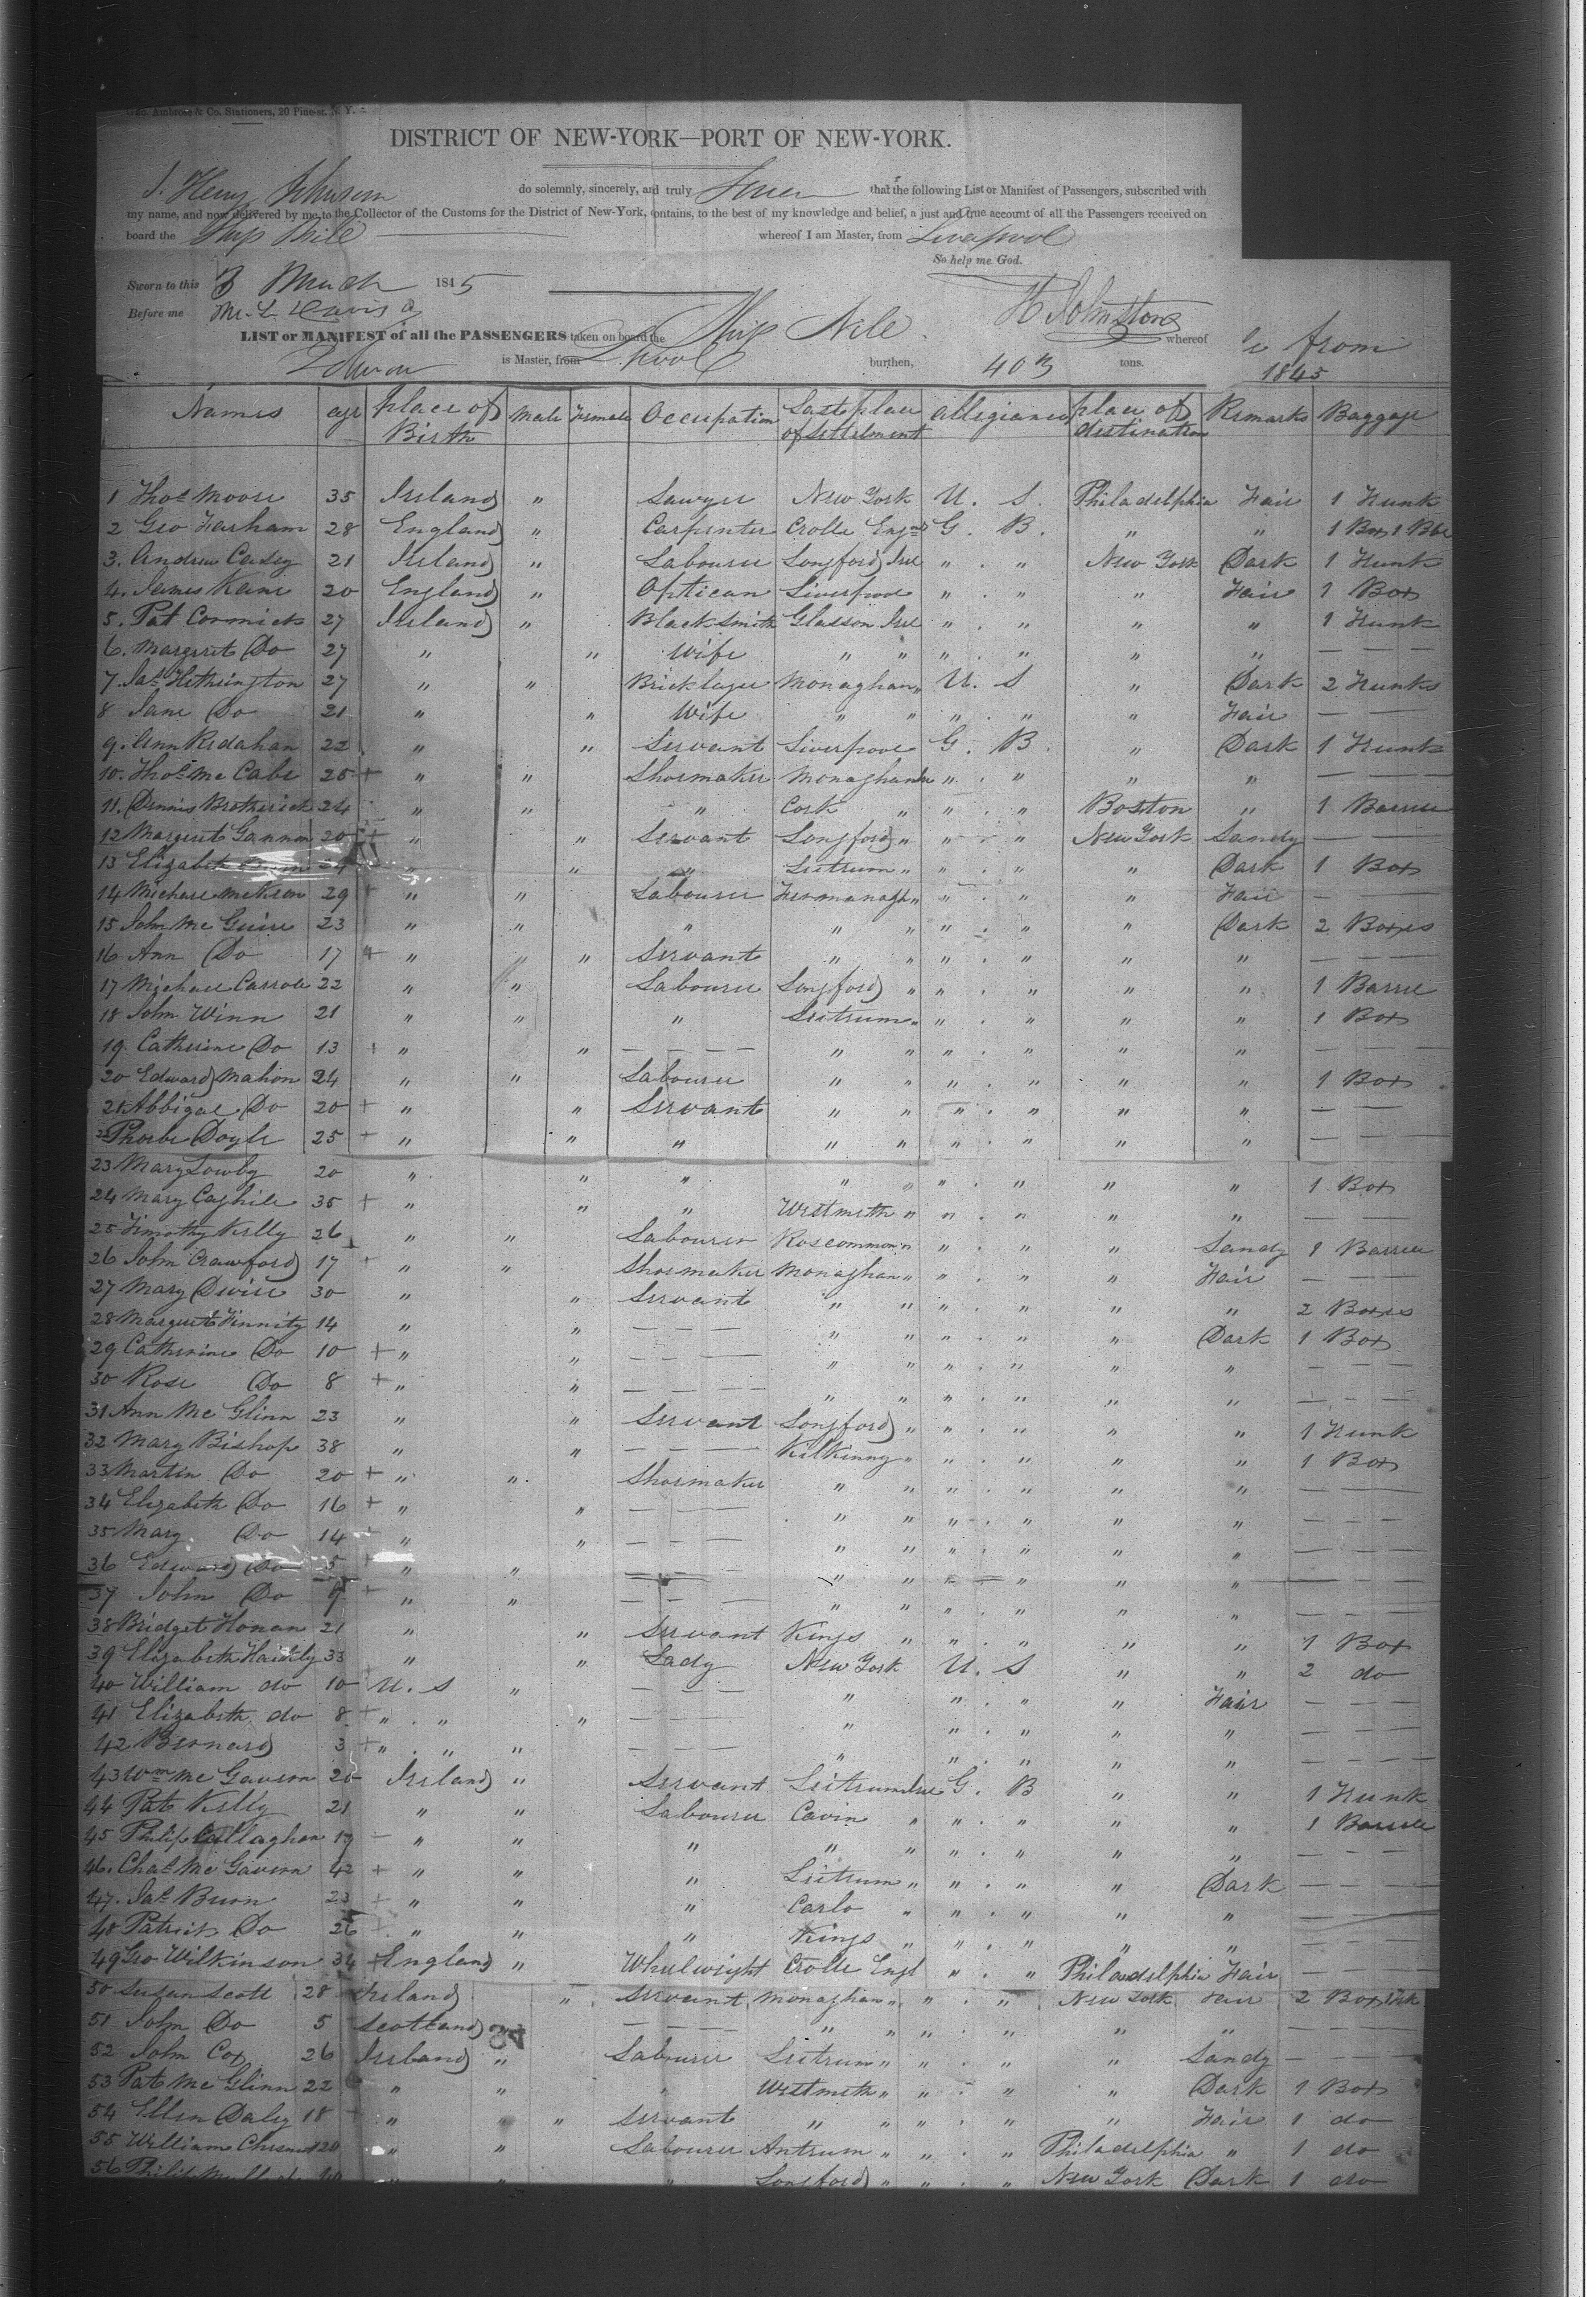 Geo. Ambrose & Co. Stationers, 20 Pine-st. N. Y.
DISTRICT OF NEW-YORK—PORT OF NEW-YORK.
I. Henry Johnson do solemnly, sincerely, and truly Swear that the following List or Manifest of Passengers, subscribed with
my name, and now delivered by me to the Collector of the Customs for the District of New-York, contains, to the best of my knowledge and belief, a just and true account of all the Passengers received on
board the Ship Nile whereof I am Master, from Liverpool
So help me God.
Sworn to this 3 March 1845
Before me M. L. Davis H Johnston
LIST or MANIFEST of all the PASSENGERS taken on board the Ship Nile whereof
is Master, from L'pool burthen, 403 tons.
from
1845
Names age place of Birth Male Female Occupation Last place of settlement allegiance place of destination Remarks Baggage
1 Thos Moore 35 Ireland " Sawyer New York U. S. Philadelphia Fair 1 Trunk
2 Geo Farham 28 England " Carpenter Crolle Engd G. B. " " 1 Box 1 Bbl
3. Andrew Casey 21 Ireland " Labourer Longford Ire " . " New York Dark 1 Trunk
4. James Kane 20 England " Optican Liverpool " . " " Fair 1 Box
5. Pat Cormick 27 Ireland " Black Smith Glasson Ire " . " " " 1 Trunk
6. Margret Do 27 " " Wife " " " . " " " — — —
7. Jas Hetherington 27 " " Bricklayer Monaghan " U. S " Dark 2 Trunks
8 Jane Do 21 " " Wife " " " . " " Fair — — —
9. Ann Redahan 22 " " Servant Liverpool G. B. " Dark 1 Trunk
10. Thos Mc Cabe 25 + " " Shoemaker Monaghan Ire " . " " " — — —
11. Dennis Brotherick 24 " " " Cork " " . " Boston " 1 Barrel
12 Margret Gannon 20 + " " Servant Longford " " . " New York Sandy —
13 Elizabeth " " " Leitrum " " . " " Dark 1 Box
14 Michael McKeon 29 + " " Labourer Fermanagh " " . " " Fair — — —
15 John Mc Guire 23 " " " " " " . " " Dark 2 Boxes
16 Ann Do 17 + " " Servant " " " . " " " — — —
17 Michael Carroll 22 " " Labourer Longford " " . " " " 1 Barrel
18 John Winn 21 " " " Leitrum " " . " " " 1 Box
19. Catherine Do 13 + " " — — — — " " " . " " " — — —
20 Edward Mahon 24 " " Labourer " " " . " " " 1 Box
21 Abbigal Do 20 + " " Servant " " " . " " " — — —
22 Phoebe Doyle 25 + " " " " " " . " " " — — —
23 Mary Lowby 20 " " " " " " . " " " 1 Box
24 Mary Caghill 35 + " " " Westmeth " " . " " " — — —
25 Timothy Kelly 26 " " Labourer Roscommon " " . " " Sandy 1 Barrel
26 John Crawford 17 + " " Shoemaker Monaghan " " . " " Fair — — —
27 Mary Divire 30 " " Servant " " " . " " " 2 Boxes
28 Margret Finnity 14 " " — — — " " " . " " Dark 1 Box
29 Catherine Do 10 + " " " " " . " " " — — —
30 Rose Do 8 + " " — — — " " " . " " " — — —
31 Ann Mc Glinn 23 " " Servant Longford " " . " " " 1 Trunk
32 Mary Bishop 38 " " — — — — Kilkinny " " . " " " 1 Box
33 Martin Do 20 + " " Shoemaker " " " . " " " — — —
34 Elizabeth Do 16 + " " — — — " " " . " " " — — —
35 Mary Do 14 + " " — — — " " " . " " " — — —
36 Edward Do 5 + " " — — — " " " . " " " — — —
37 John Do 9 + " " — — — " " " . " " " — — —
38 Bridget Honan 21 " " Servant Kings " " . " " " 1 Box
39 Elizabeth 33 " " Lady New York U. S " " 2 do
40 William do 10 U. S " — — — " " . " " Fair — — —
41 Elizabeth do 8 + " . " " — — — " " . " " " — — —
42 Bernard 3 + " . " " — — — " " . " " " — — —
43 Wm Mc Gavern 20 Ireland " Servant Leitrum Ire G. B " " 1 Trunk
44 Pat Kelly 21 " " Labourer Cavin " " . " " " 1 Barrel
45 Philip Callaghan 19 " " " " " " . " " " — — —
46. Chas Mc Gavern 42 + " " " Leitrum " " . " " Dark — — —
47. Jas Burn 23 + " " " Carlo " " . " " " — — —
48 Patrick Do 26 + " " " Kings " " . " " " — — —
49 Geo Wilkinson 34 + England " Whulwright Crolle Engl " . " Philadelphia Fair — — —
50 Susan Scott 28 Ireland " Servant Monaghan " " . " New York Fair 2 Box 1 Trk
51 John Do 5 Scotland " — — — " " " . " " " — — —
52 John Cox 26 Ireland " Labourer Leitrum " " . " " Sandy — — —
53 Pat Mc Glinn 22 " " " Westmeth " " . " " Dark 1 Box
54 Ellen Daly 18 + " " Servant " " " . " " Fair 1 do
55 William 20 " " Labourer Antrum " " . " Philadelphia " 1 do
56 Philip 40 " " " Longford " " . " New York Dark 1 do